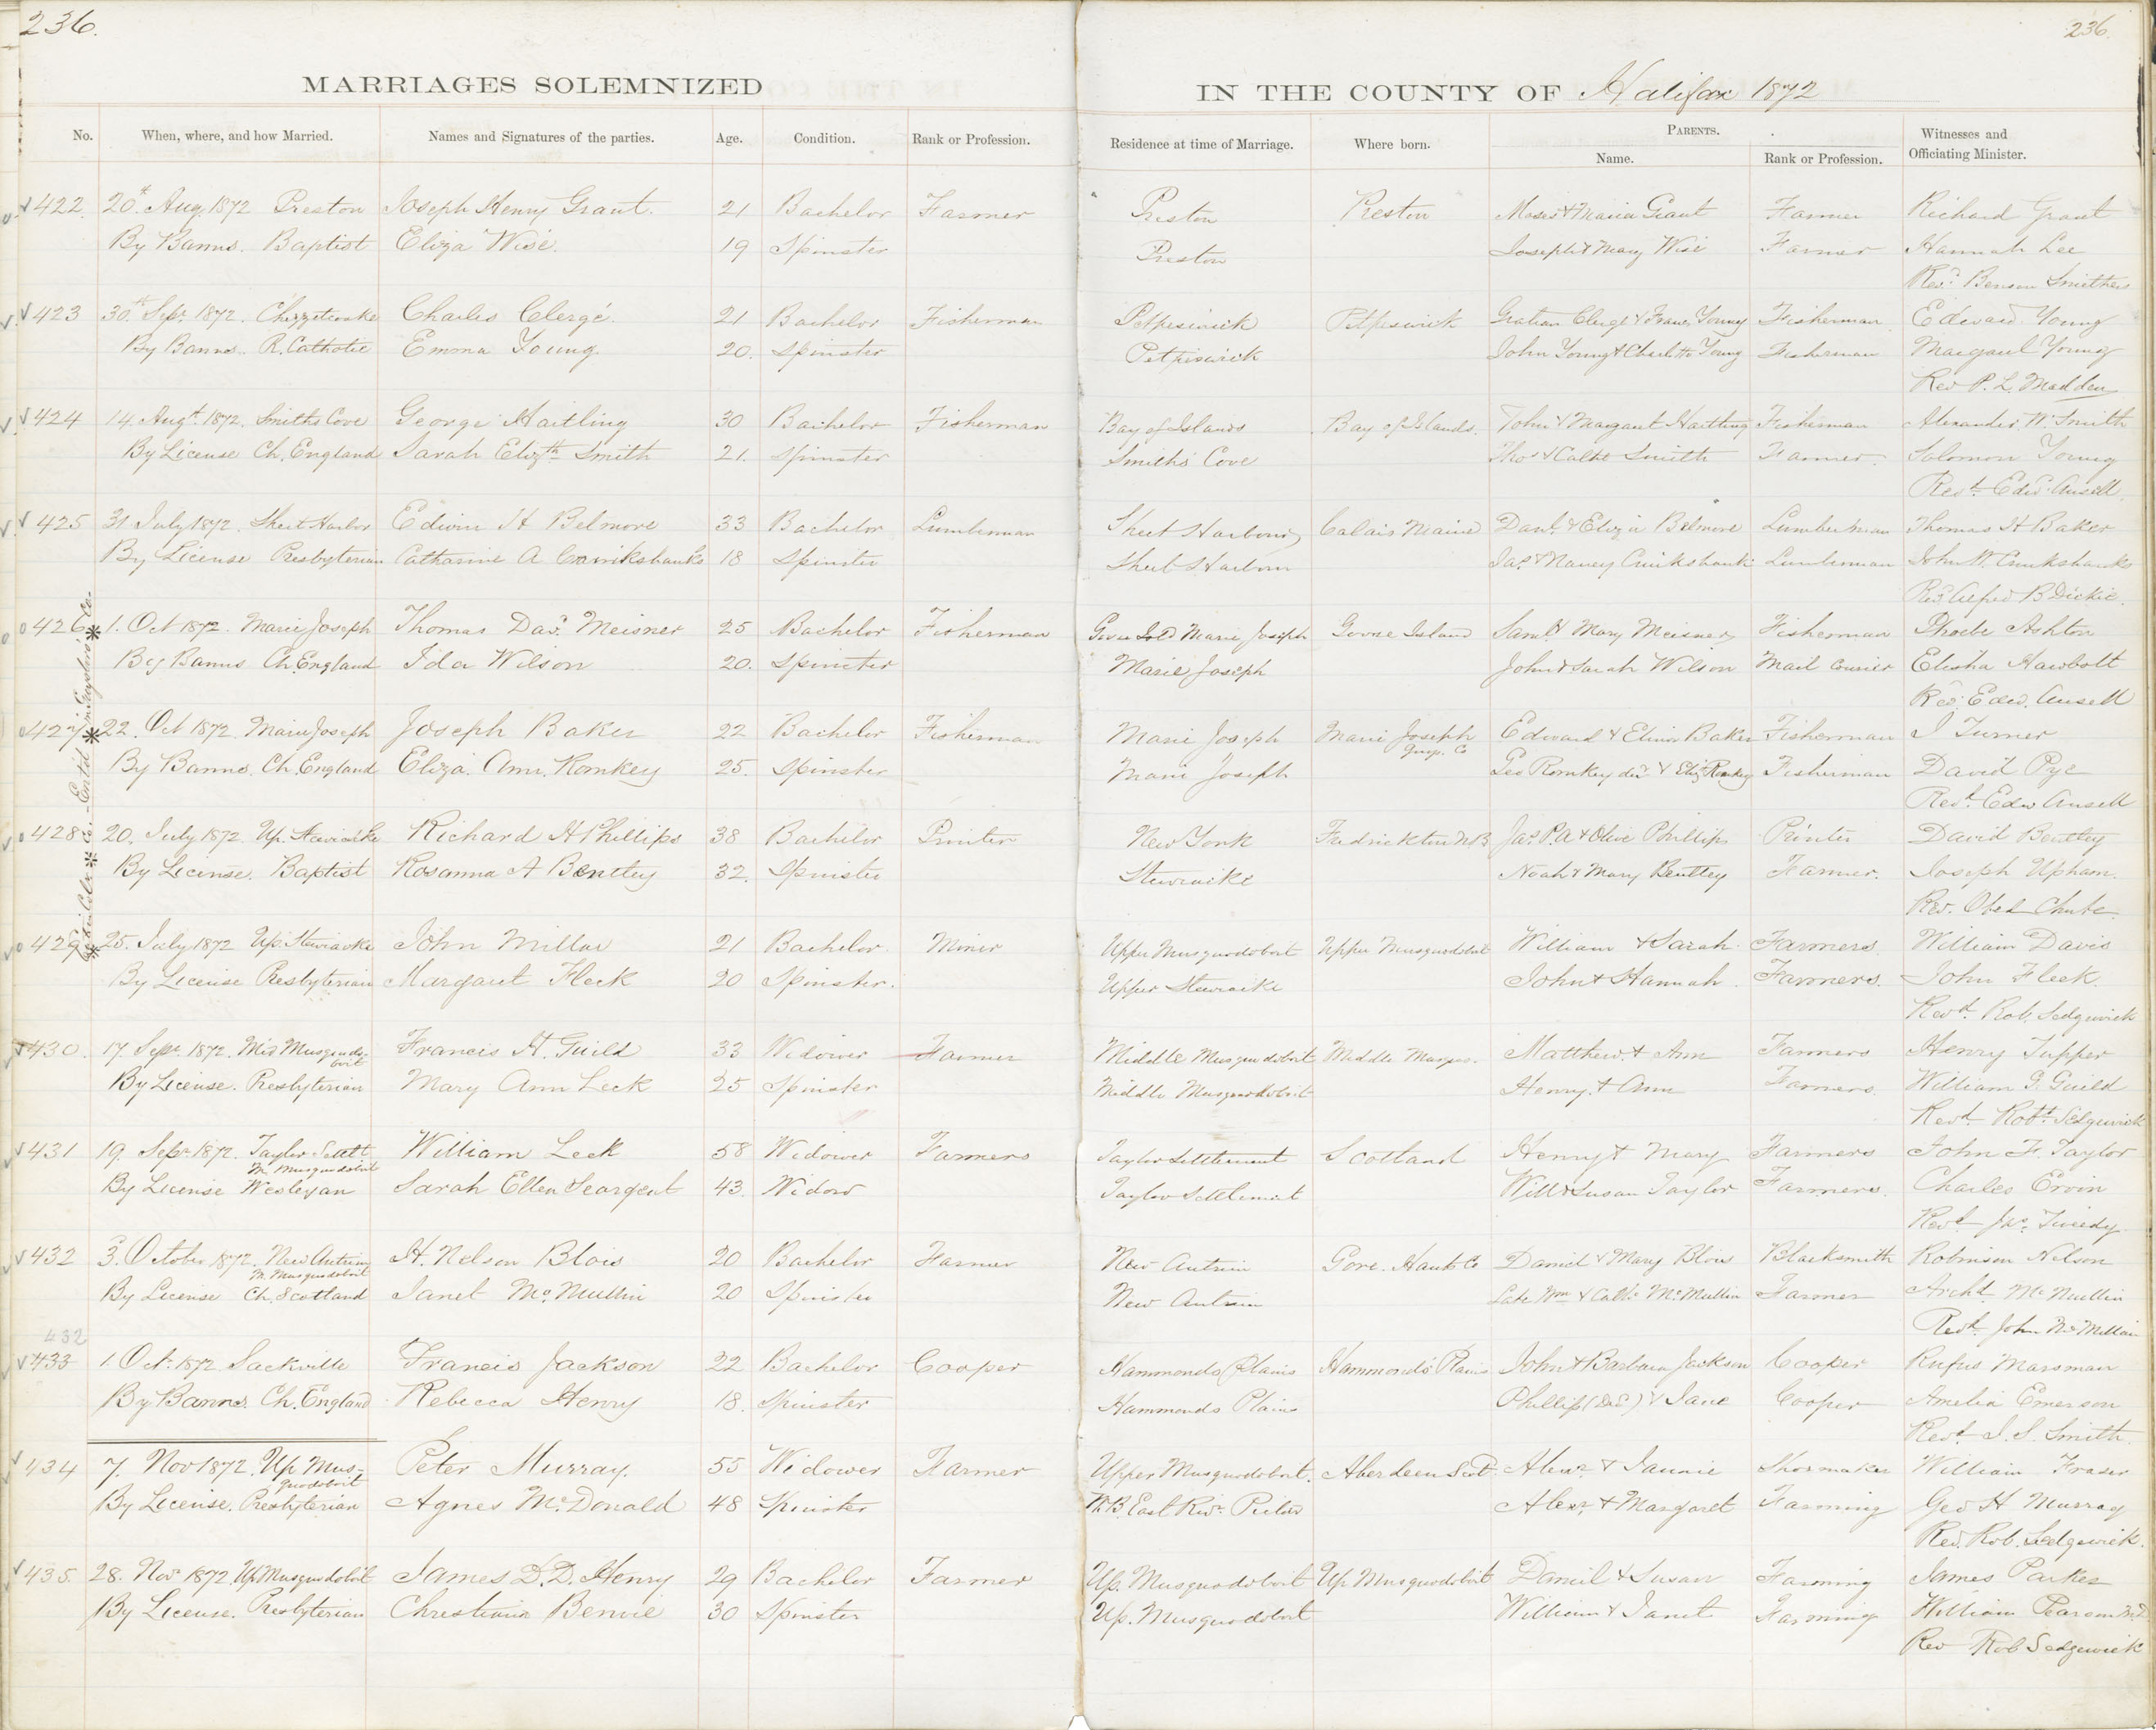 236.
236.
MARRIAGES SOLEMNIZED
IN THE COUNTY OF Halifax 1872
No. When, where, and how Married. Names and Signatures of the parties. Age. Condition. Rank or Profession. Residence at time of Marriage. Where born. PARENTS. Name. Rank or Profession. Witnesses and Officiating Minister.
422 20th Aug 1872 Preston Joseph Henry Grant. 21 Bachelor Farmer Preston Preston Moses & Maria Grant Farmer Richard Grant
By Banns. Baptist Eliza Wise. 19 Spinster Preston Joseph & Mary Wise Farmer Hannah Lee
Revd. Benson Smithers
423 30th Sepr. 1872. Chezzetcooke Charles Clergé. 21 Bachelor Fisherman Petpeswick Petpeswick Gratien Clergé & Franc. Young Fisherman Edward Young
By Banns. R. Catholic Emona Young 20. Spinster Petpeswick John Young & Charlotte Young Fisherman Margaret Young
Rev P. L. Madden
424 14 Augt. 1872. Smiths Cove George Hartling 30 Bachelor Fisherman Bay of Islands Bay of Islands. John & Margaret Hartling Fisherman Alexander W. Smith
By License Ch. England Sarah Elizth Smith 21. Spinster Smiths Cove Thos & Cathe Smith Farmer Solomon Young
Revd. Edw. Ansell.
425 31 July 1872. Sheet Harbor Edwin H Belmore 33 Bachelor Lumberman Sheet Harbour Calais Maine Danl. & Eliza Belmore Lumberman Thomas H Baker
By License Presbyterian Catharine A Cruikshanks 18 Spinster Sheet Harbour Jas. & Nancy Cruikshank Lumberman John W. Cruikshanks
Revd Alfred B Dickie.
426 * 1. Oct 1872. Marie Joseph Thomas Davd. Meisner 25 Bachelor Fisherman Goose Isld. Marie Joseph Goose Island Saml. & Mary Meisner Fisherman Phoebe Ashton
By Banns Ch. England Ida Wilson 20. Spinster Marie Joseph John & Sarah Wilson Mail Courier Elisha Hawbolt
Rev. Edw. Ansell
427 * 22. Oct 1872. Marie Joseph Joseph Baker 22 Bachelor Fisherman Marie Joseph Marie Joseph Guys. Co Edward & Elinor Baker Fisherman J Turner
By Banns. Ch. England Eliza. Ann. Romkey 25. Spinster Marie Joseph Geo Romkey decd & Eliz. Romkey Fisherman David Pye
Revd. Edw Ansell
428 * 20. July 1872. Up. Stewiacke Richard H Phillips 38 Bachelor Printer New York Fredrickton NB Jas. P. A & Olive Phillips Printer David Bentley
By License. Baptist Rosanna A Bentley 32. Spinster Stewiacke Noah & Mary Bentley Farmer. Joseph Upham.
Rev. Obed Chute.
429 * 25. July 1872 Up. Stewiacke John Millar 21 Bachelor. Miner Upper Musquodoboit Upper Musquodoboit William & Sarah. Farmers. William Davis
By License Presbyterian Margaret Fleck 20 Spinster. Upper Stewiacke John & Hannah. Farmers. John Fleck.
Revd. Rob. Sedgwick
430. 17. Sepr. 1872. Mid Musquodoboit Francis H. Guild 33 Widower Farmer Middle Musquodoboit Middle Musquo. Matthew & Ann Farmers Henry Tupper
By License. Presbyterian Mary Ann Leck 25 Spinster Middle Musquodoboit Henry & Ann Farmers William G. Guild
Revd. Robt. Sedgewick
431 19 Sepr. 1872. Taylor Settt. M. Musquodoboit William Leck 58 Widower Farmers Taylor Settlement Scotland Henry & Mary Farmers John F. Taylor
By License Wesleyan Sarah Ellen Seargent 43. Widow Taylor Settlement Will & Susan Taylor Farmers. Charles Ervin
Revd. Jas. Tweedy.
432 3. October 1872. New Antrim M. Musquodoboit H. Nelson Blois 20 Bachelor Farmer New Antrim Gore. Hants Co Daniel & Mary Blois Blacksmith Robinson Nelson
By License Ch. Scotland Janet McMullin 20 Spinster New Antrim Late Wm & Cathe McMullin Farmer Archd. McMullin
Revd. John McMillan
432
433 1. Oct. 1872 Sackville Francis Jackson 22 Bachelor Cooper Hammonds Plains Hammonds Plains John & Barbara Jackson Cooper Rufus Marsman
By Banns Ch. England Rebecca Henry 18. Spinster Hammonds Plains Phillip (Decd.) & Jane Cooper Amelia Emerson
Revd. J. S. Smith.
434 7. Nov 1872. Up Musquodoboit Peter Murray. 55 Widower Farmer Upper Musquodoboit. Aberdeen Scot. Alexr. & Jannie Shoemaker William Fraser
By License. Presbyterian Agnes McDonald 48 Spinster W. B. East Rivr. Pictou Alexr. & Margaret Farming Geo H Murray
Rev. Rob. Sedgewick.
435. 28. Novr 1872. Up Musquodoboit James D. D. Henry 29 Bachelor Farmer Up. Musquodoboit Up Musquodoboit Daniel & Susan Farming James Parker
By License. Presbyterian Christiana Benvie 30 Spinster Up. Musquodoboit William & Janet Farming William Pearson
Rev Rob Sedgewick